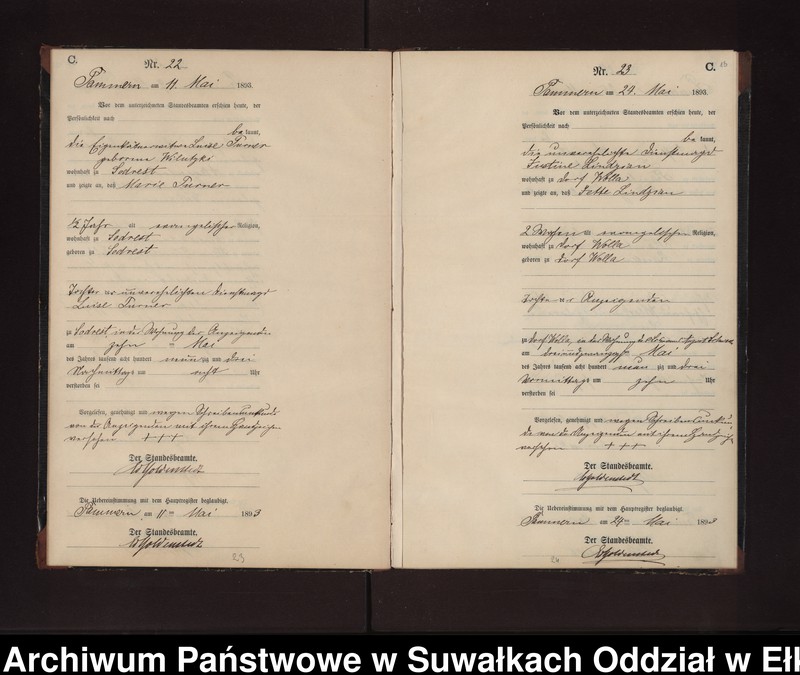 C.
Nr. 22
am 11. Mai 1893.
Vor dem unterzeichneten Standesbeamten erschien heute, der
Persönlichkeit nach
be kannt,
die Luise Turner
geborene
wohnhaft zu Sodrest
und zeigte an, daß Marie Turner
½ Jahr alt evangelischer Religion,
wohnhaft zu Sodrest
geboren zu Sodrest
Tochter der unverehelichten Dienstmagd
Luise Turner
zu Sodrest in der Wohnung der Anzeigenden
am zehn ten Mai
des Jahres tausend acht hundert neunzig und drei
Nachmittags um acht Uhr
verstorben sei
Vorgelesen, genehmigt und wegen Schreibensunkunde
von der Anzeigenden mit ihrem Handzeichen
versehen +++
Der Standesbeamte.
Die Uebereinstimmung mit dem Hauptregister beglaubigt.
am 11 ten Mai 1893
Der Standesbeamte.
23
Nr. 23
C.
am 29. Mai 1893.
Vor dem unterzeichneten Standesbeamten erschien heute, der
Persönlichkeit nach
be kannt,
die unverehelichte Dienstmagd
Justine
wohnhaft zu Dorf Wolla
und zeigte an, daß Jette
2 Wochen alt evangelischer Religion,
wohnhaft zu Dorf Wolla
geboren zu Dorf Wolla
Tochter der Anzeigenden
zu Dorf Wolla, in der Wohnung des
am Mai
des Jahres tausend acht hundert neun zig und drei
Vormittags um zehn Uhr
verstorben sei
Vorgelesen, genehmigt und wegen Schreibensunkun
de von der Anzeigenden mit ihrem Handzeichen
versehen +++
Der Standesbeamte.
Die Uebereinstimmung mit dem Hauptregister beglaubigt.
am 29 ten Mai 1893
Der Standesbeamte.
Archiwum Państwowe w Suwałkach Oddział w Ełk